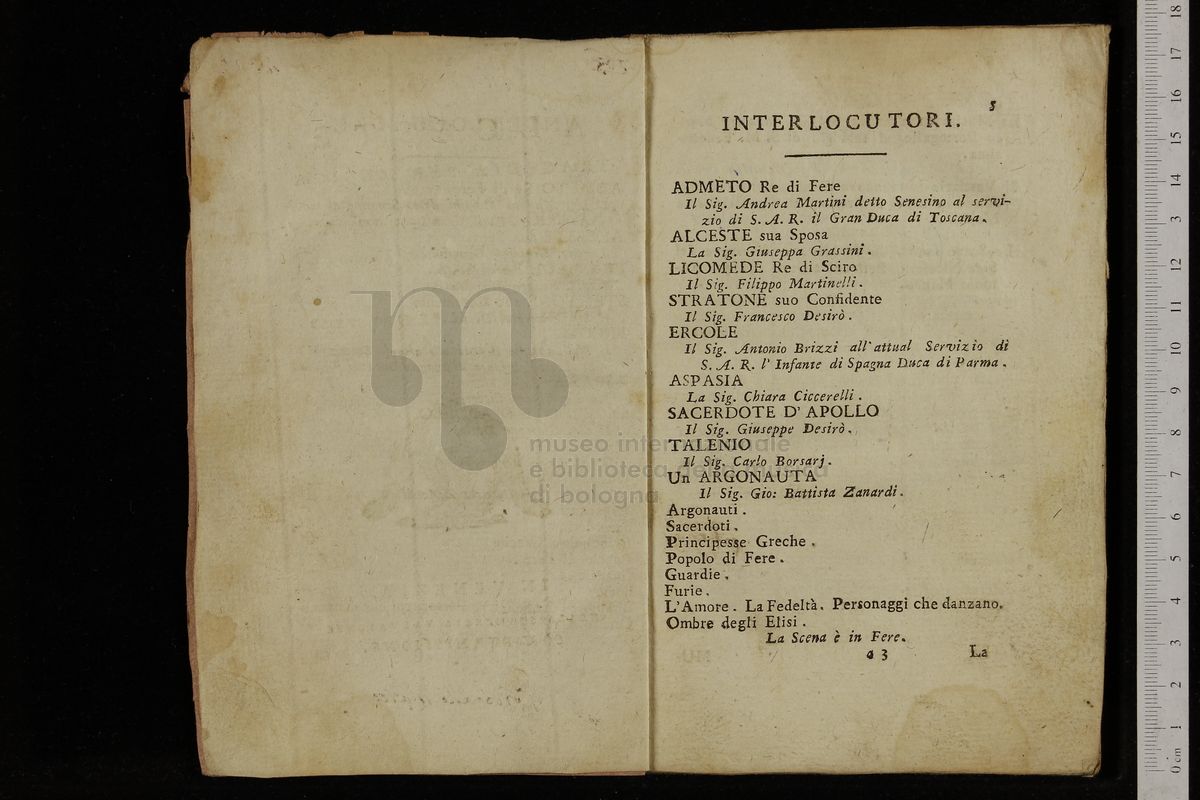 5
INTERLOCUTORI.
ADMETO Re di Fere
Il Sig. Andrea Martini detto Senesino al servi-
zio di S. A. R. il Gran Duca di Toscana.
ALCESTE sua Sposa
La Sig. Giuseppa Grassini.
LICOMEDE Re di Sciro
Il Sig. Filippo Martinelli.
STRATONE suo Confidente
Il Sig. Francesco Desirò.
ERCOLE
Il Sig. Antonio Brizzi all'attual Servizio di
S. A. R. l' Infante di Spagna Duca di Parma.
ASPASIA
La Sig. Chiara Ciccerelli.
SACERDOTE D' APOLLO
Il Sig. Giuseppe Desirò.
TALENIO
Il Sig. Carlo Borsarj.
Un ARGONAUTA
Il Sig. Gio: Battista Zanardi.
Argonauti.
Sacerdoti.
Principesse Greche.
Popolo di Fere.
Guardie.
Furie.
L'Amore. La Fedeltà. Personaggi che danzano.
Ombre degli Elisi.
La Scena è in Fere.
a 3 La
m
museo internazionale
e biblioteca della musica
di bologna
18
17
16
15
14
13
12
11
10
9
8
7
6
5
4
3
2
1
0 cm